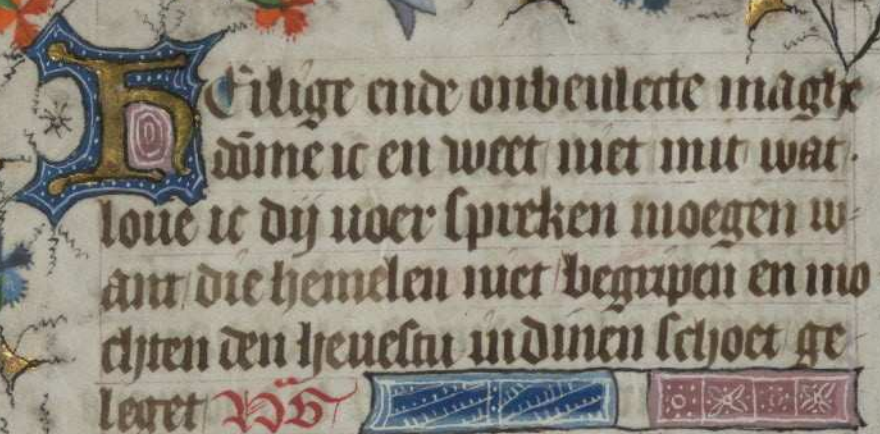 HEilige ende onbeulecte maghe
dōme ic en weet niet mit wat
loue ic dij uoer spreken moegen w
ant die hemelen niet begripen en mo
chten den heuestu in dinen schoet ge
leget